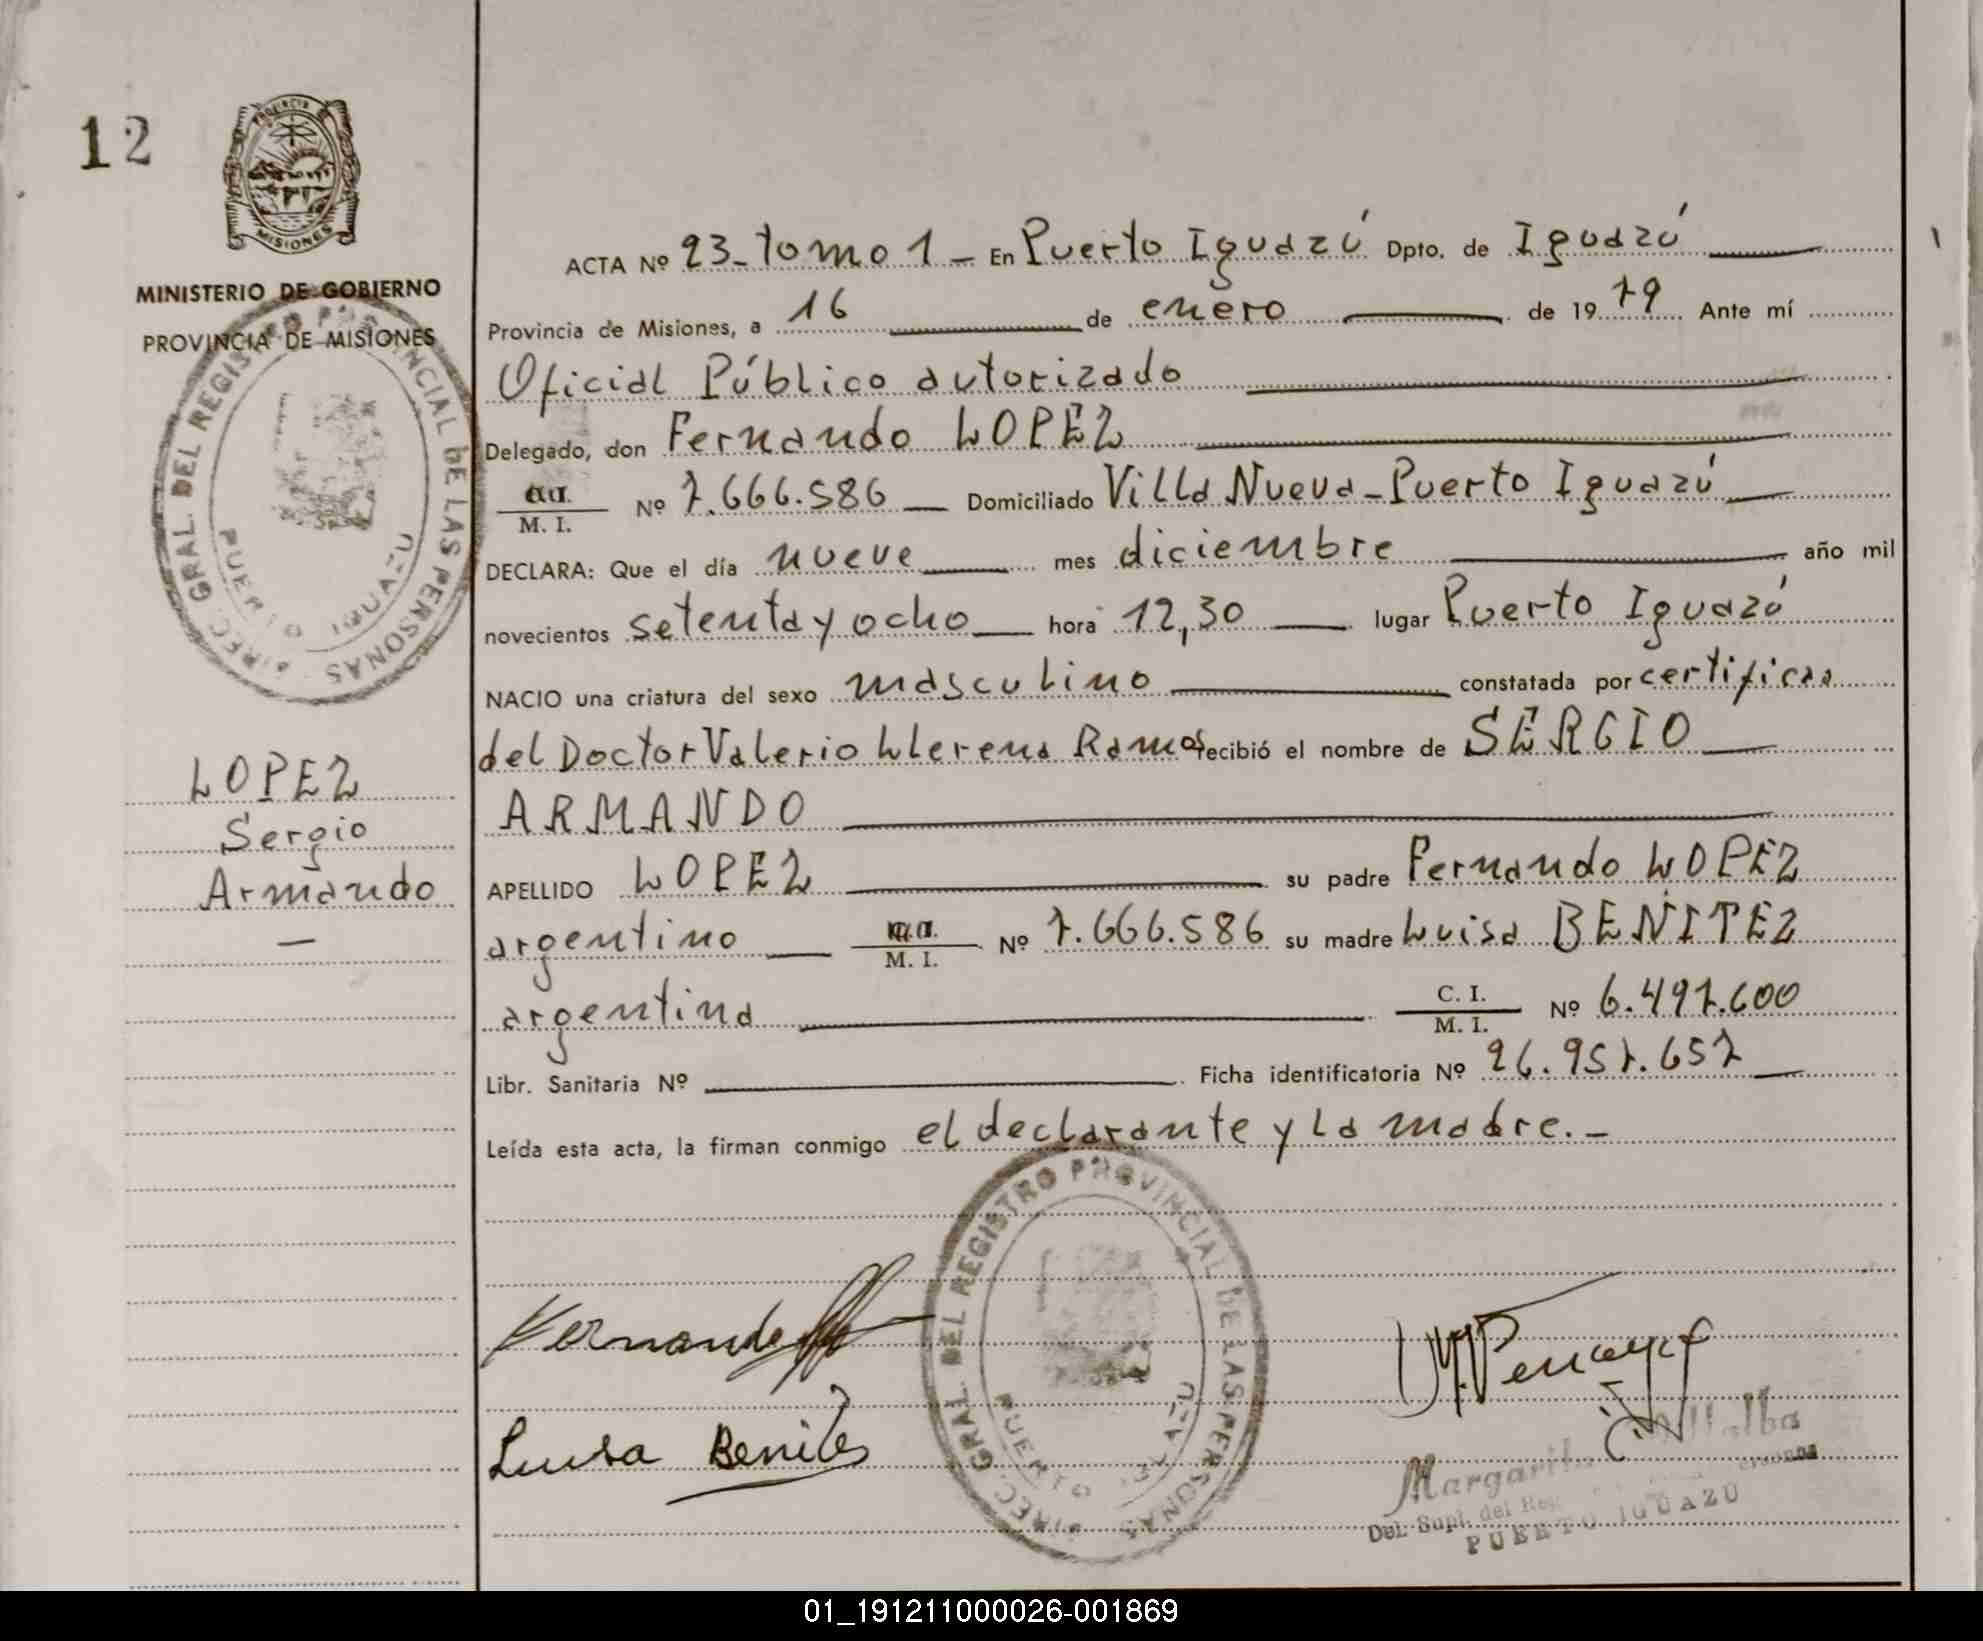 12
PROVINCIA DE
MISIONES
MINISTERIO DE GOBIERNO
PROVINCIA DE MISIONES
DIREC. GRAL. DEL REGISTRO PROVINCIAL DE LAS PERSONAS
PUERTO IGUAZU
LOPEZ
Sergio
Armando
—
ACTA Nº 23_tomo 1_ En Puerto Iguazú Dpto. de Iguazú
Provincia de Misiones, a 16 de enero de 1979 Ante mí
Oficial Público autorizado
Delegado, don Fernando LOPEZ
M. I. Nº 7.666.586 Domiciliado Villa Nueva_Puerto Iguazú
DECLARA: Que el día nueve mes diciembre año mil
novecientos setenta y ocho hora 12,30 lugar Puerto Iguazú
NACIO una criatura del sexo masculino constatada por certificas
del Doctor Valerio Llerena Ramos recibió el nombre de SERGIO
ARMANDO
APELLIDO LOPEZ su padre Fernando LOPEZ
argentino M. I. Nº 7.666.586 su madre Luisa BENITEZ
argentina C. I. M. I. Nº 6.497.600
Libr. Sanitaria Nº Ficha identificatoria Nº 26.957.657
Leída esta acta, la firman conmigo el declarante y la madre._
DIREC. GRAL. DEL REGISTRO PROVINCIAL DE LAS PERSONAS
PUERTO IGUAZU
Luisa Benites
Margarita Villalba
Del. Supl. del Reg. Personas
PUERTO IGUAZU
01_191211000026-001869